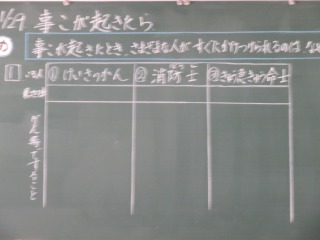 1/29 事こが起きたら
事こが起きたとき、さまざまな人が すぐにかけつけられるのは
1 ①けいさつかん ②消防士 ③きゅう急きゅう命士
げん場ですること